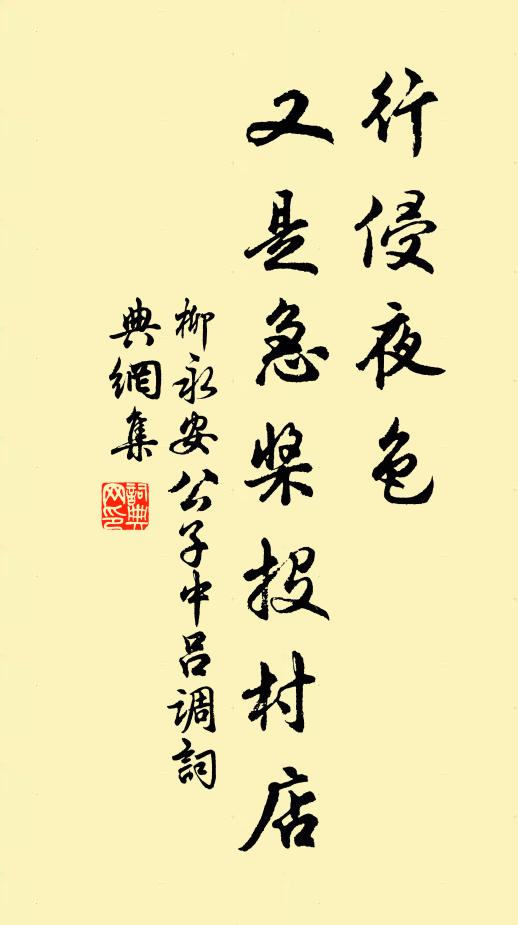 行侵夜色
又是急桨投村店
柳永安公子中吕調詞
典網集
詞典
网印